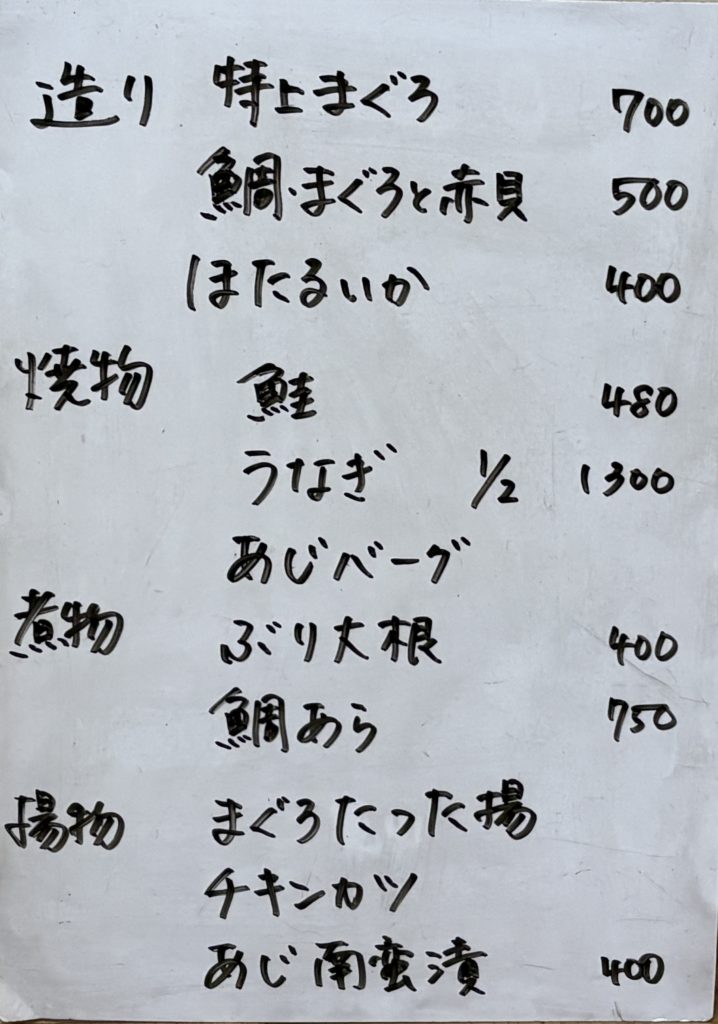 造り 特上まぐろ 700
鯛・まぐろと赤貝 500
ほたるいか 400
焼物 鮭 480
うなぎ 1/2 1300
あじバーグ
煮物 ぶり大根 400
鯛あら 750
揚物 まぐろたった揚
チキンカツ
あじ南蛮漬 400